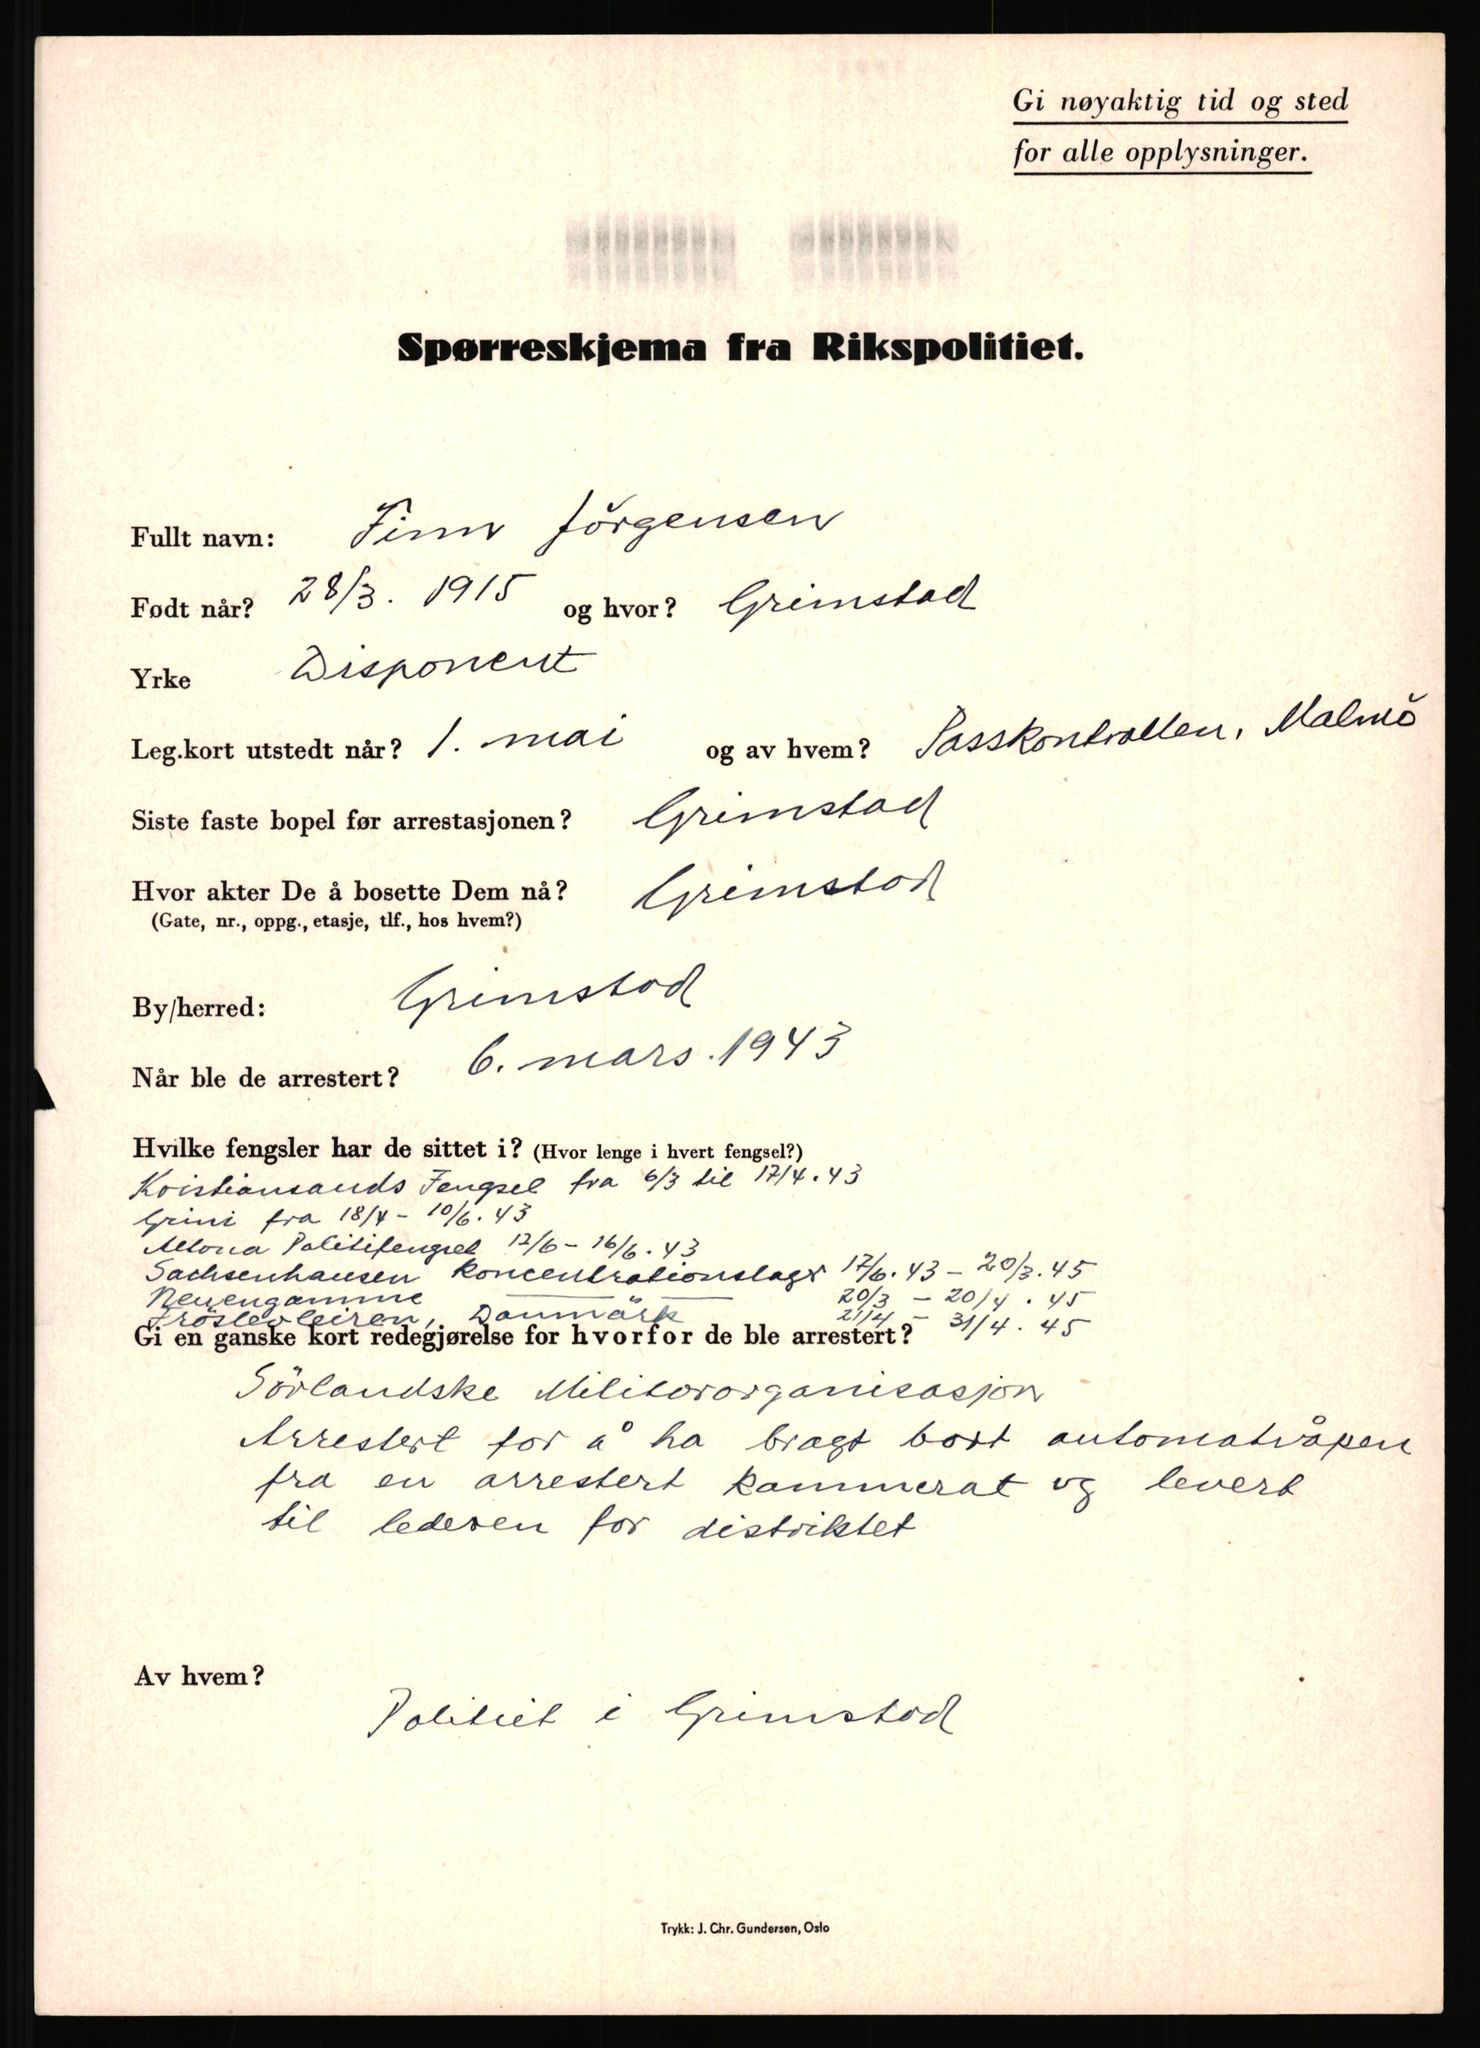 Gi nøyaktig tid og sted
for alle opplysninger.
Spørreskjema fra Rikspolitiet.
Fullt navn: Finn Jörgensen
Født når? 28/3. 1915 og hvor? Grimstad
Yrke Disponent
Leg.kort utstedt når? 1. mai og av hvem? Passkontrollen, Malmö
Siste faste bopel før arrestasjonen? Grimstad
Hvor akter De å bosette Dem nå? Grimstad
(Gate, nr., oppg., etasje, tlf., hos hvem?)
By/herred: Grimstad
Når ble de arrestert? 6. mars. 1943
Hvilke fengsler har de sittet i? (Hvor lenge i hvert fengsel?)
Kristiansands Fengsel fra 6/3 til 17/4. 43
Grini fra 18/4 - 10/6. 43
Altona Politifengsel 12/6 - 16/6. 43
Sachsenhausen Koncentrationslager 17/6. 43 - 20/3. 45
Neuengamme —— 20/3 - 20/4. 45
Fröslevleiren, Danmark 21/4 - 31/4. 45
Gi en ganske kort redegjørelse for hvorfor de ble arrestert?
Sörlandske Militærorganisasjon
Arrestert for å ha bragt bort automatvåpen
fra en arrestert kammerat og levert
til lederen for distriktet
Av hvem?
Politiet i Grimstad
Trykk: J. Chr. Gundersen, Oslo